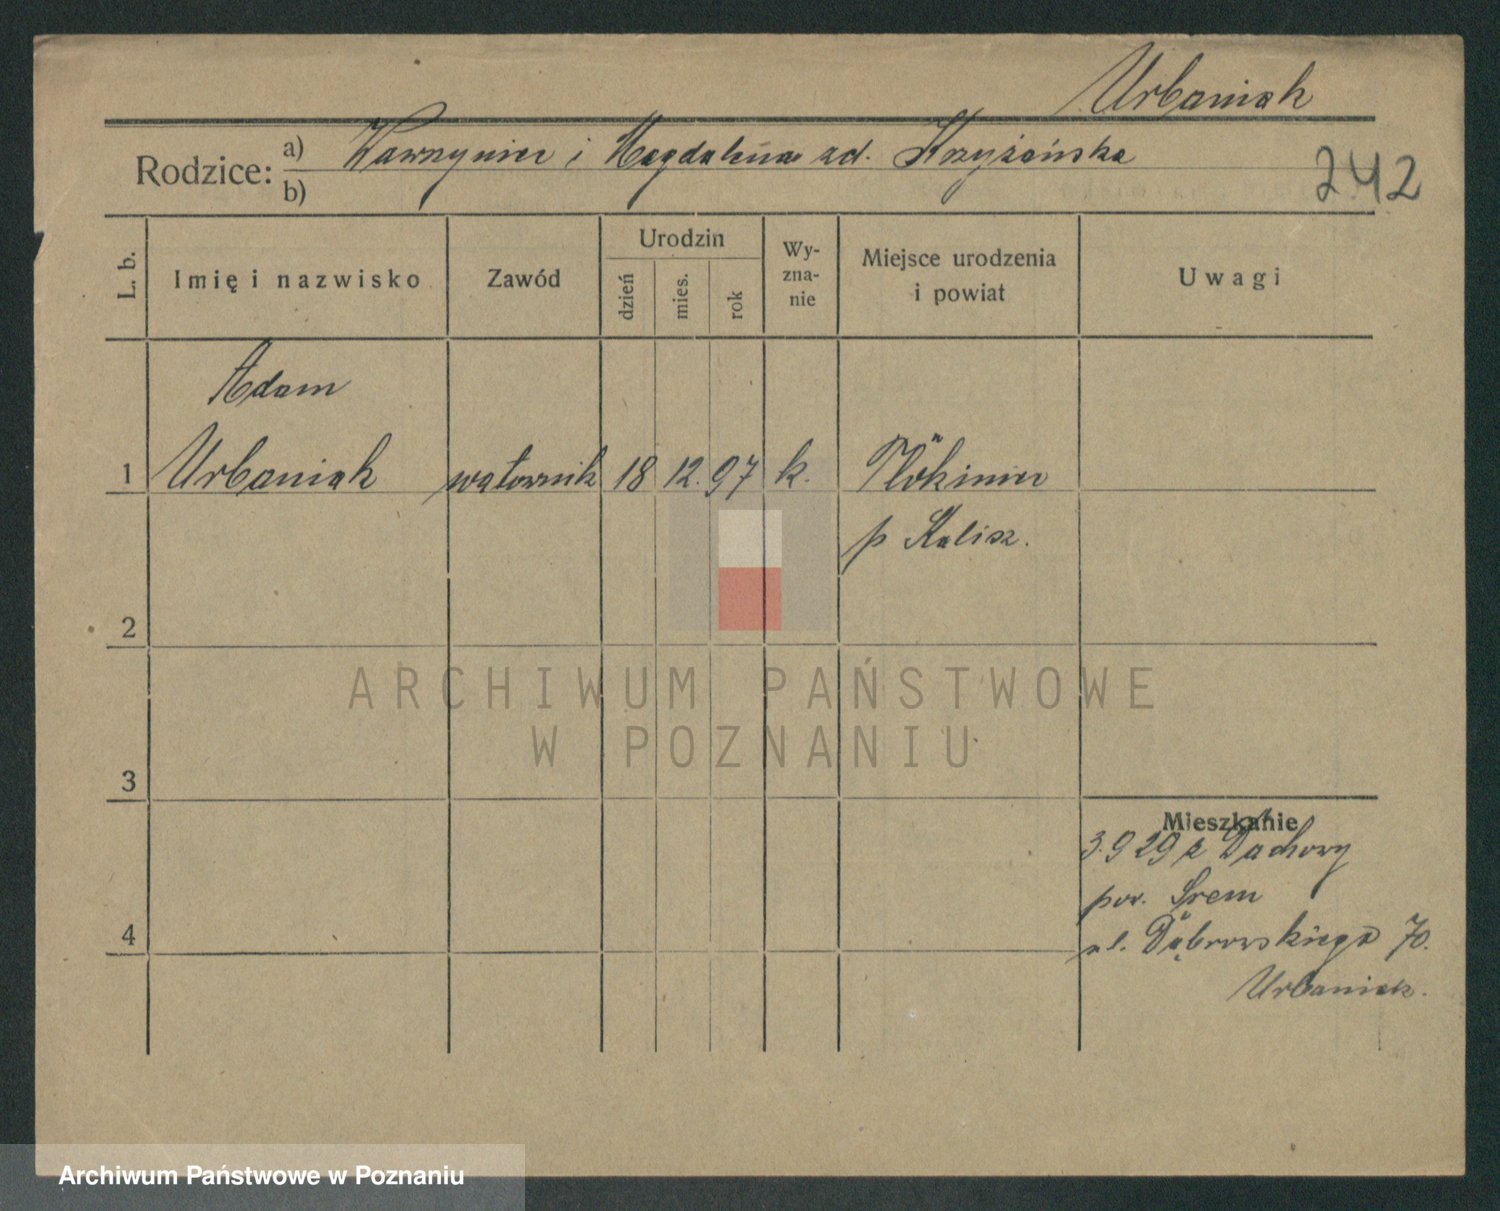 Urbaniak
Rodzice: a) Wawrzyniec i Magdalena zd. Krzyżańska
b)
242
L. b.
Imię i nazwisko
Zawód
Urodzin
dzień
mies.
rok
Wy-
zna-
nie
Miejsce urodzenia
i powiat
Uwagi
Adam
1 Urbaniak 18 12. 97 k.
p Kalisz.
2
3
4
Mieszkanie
3.9 29 z Dachowy
pow. Śrem
ul. Dąbrowskiego 70.
Urbaniak.
ARCHIWUM PAŃSTWOWE
W POZNANIU
Archiwum Państwowe w Poznaniu